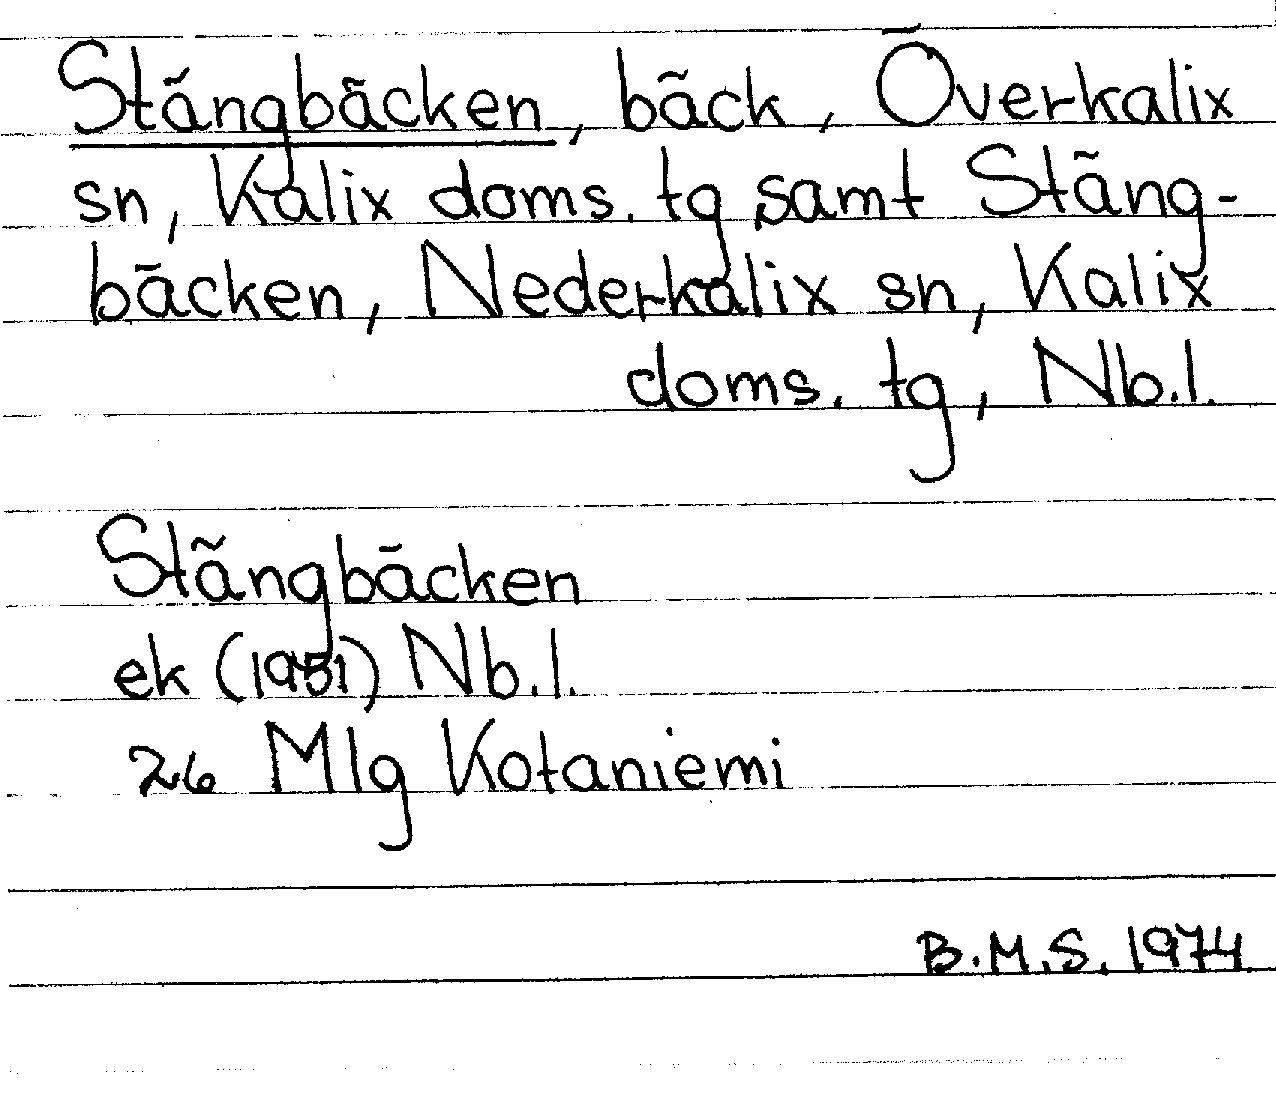 Stängbäcken, bäck, Överkalix
sn, Kalix doms. tg samt Stäng-
bäcken, Nederkalix sn, Kalix
doms. tg, Nb.l.
Stängbäcken
ek (1951) Nb.l.
26 Mlg Kotaniemi
B.M.S. 1974